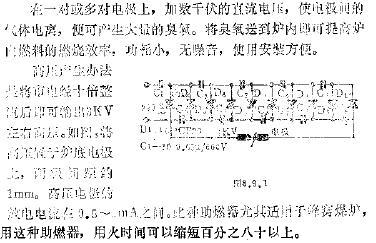 在一对或多对电极上，加数千伏的直流电压，使电极间的
气体电离，便可产生大量的臭氧。将臭氧送到炉内即可提高炉
内燃料的燃烧效率，功耗小，无噪音，使用安装方便。
高压产生办法
是将市电经十倍整
流后即可输出3KV
左右高压。如图，将
高压加于炉底电极
上，两极间距约
1mm。高压电极的
电极
图8.9.1
放电电流在0.5～1mA之间。此种助燃器尤其适用于蜂窝煤炉，
用这种助燃器，用火时间可以缩短百分之八十以上。